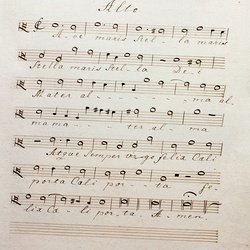 Alto
Ave maris stella maris
Stella maris Stella Dei
Mater al - - - ma al
ma ma - ter al ma
Atque Semper virgo felix Cæli
porta Cæli por - ta fe
lix Cæli porta. Amen.